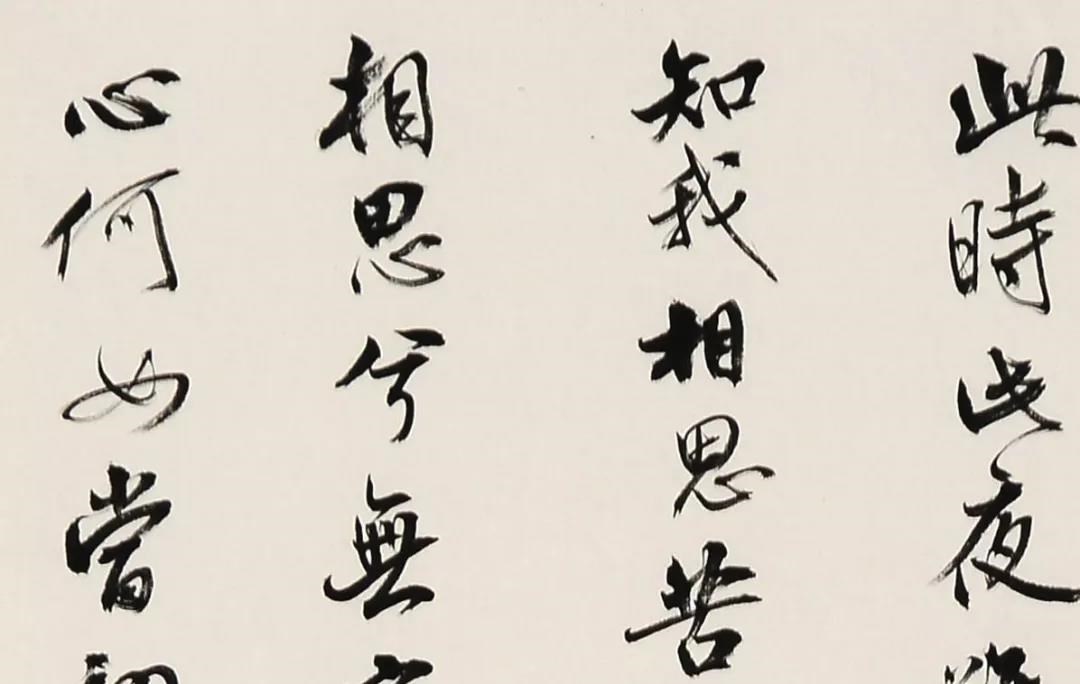 此時此夜
知我相思苦
相思兮無
心何如當